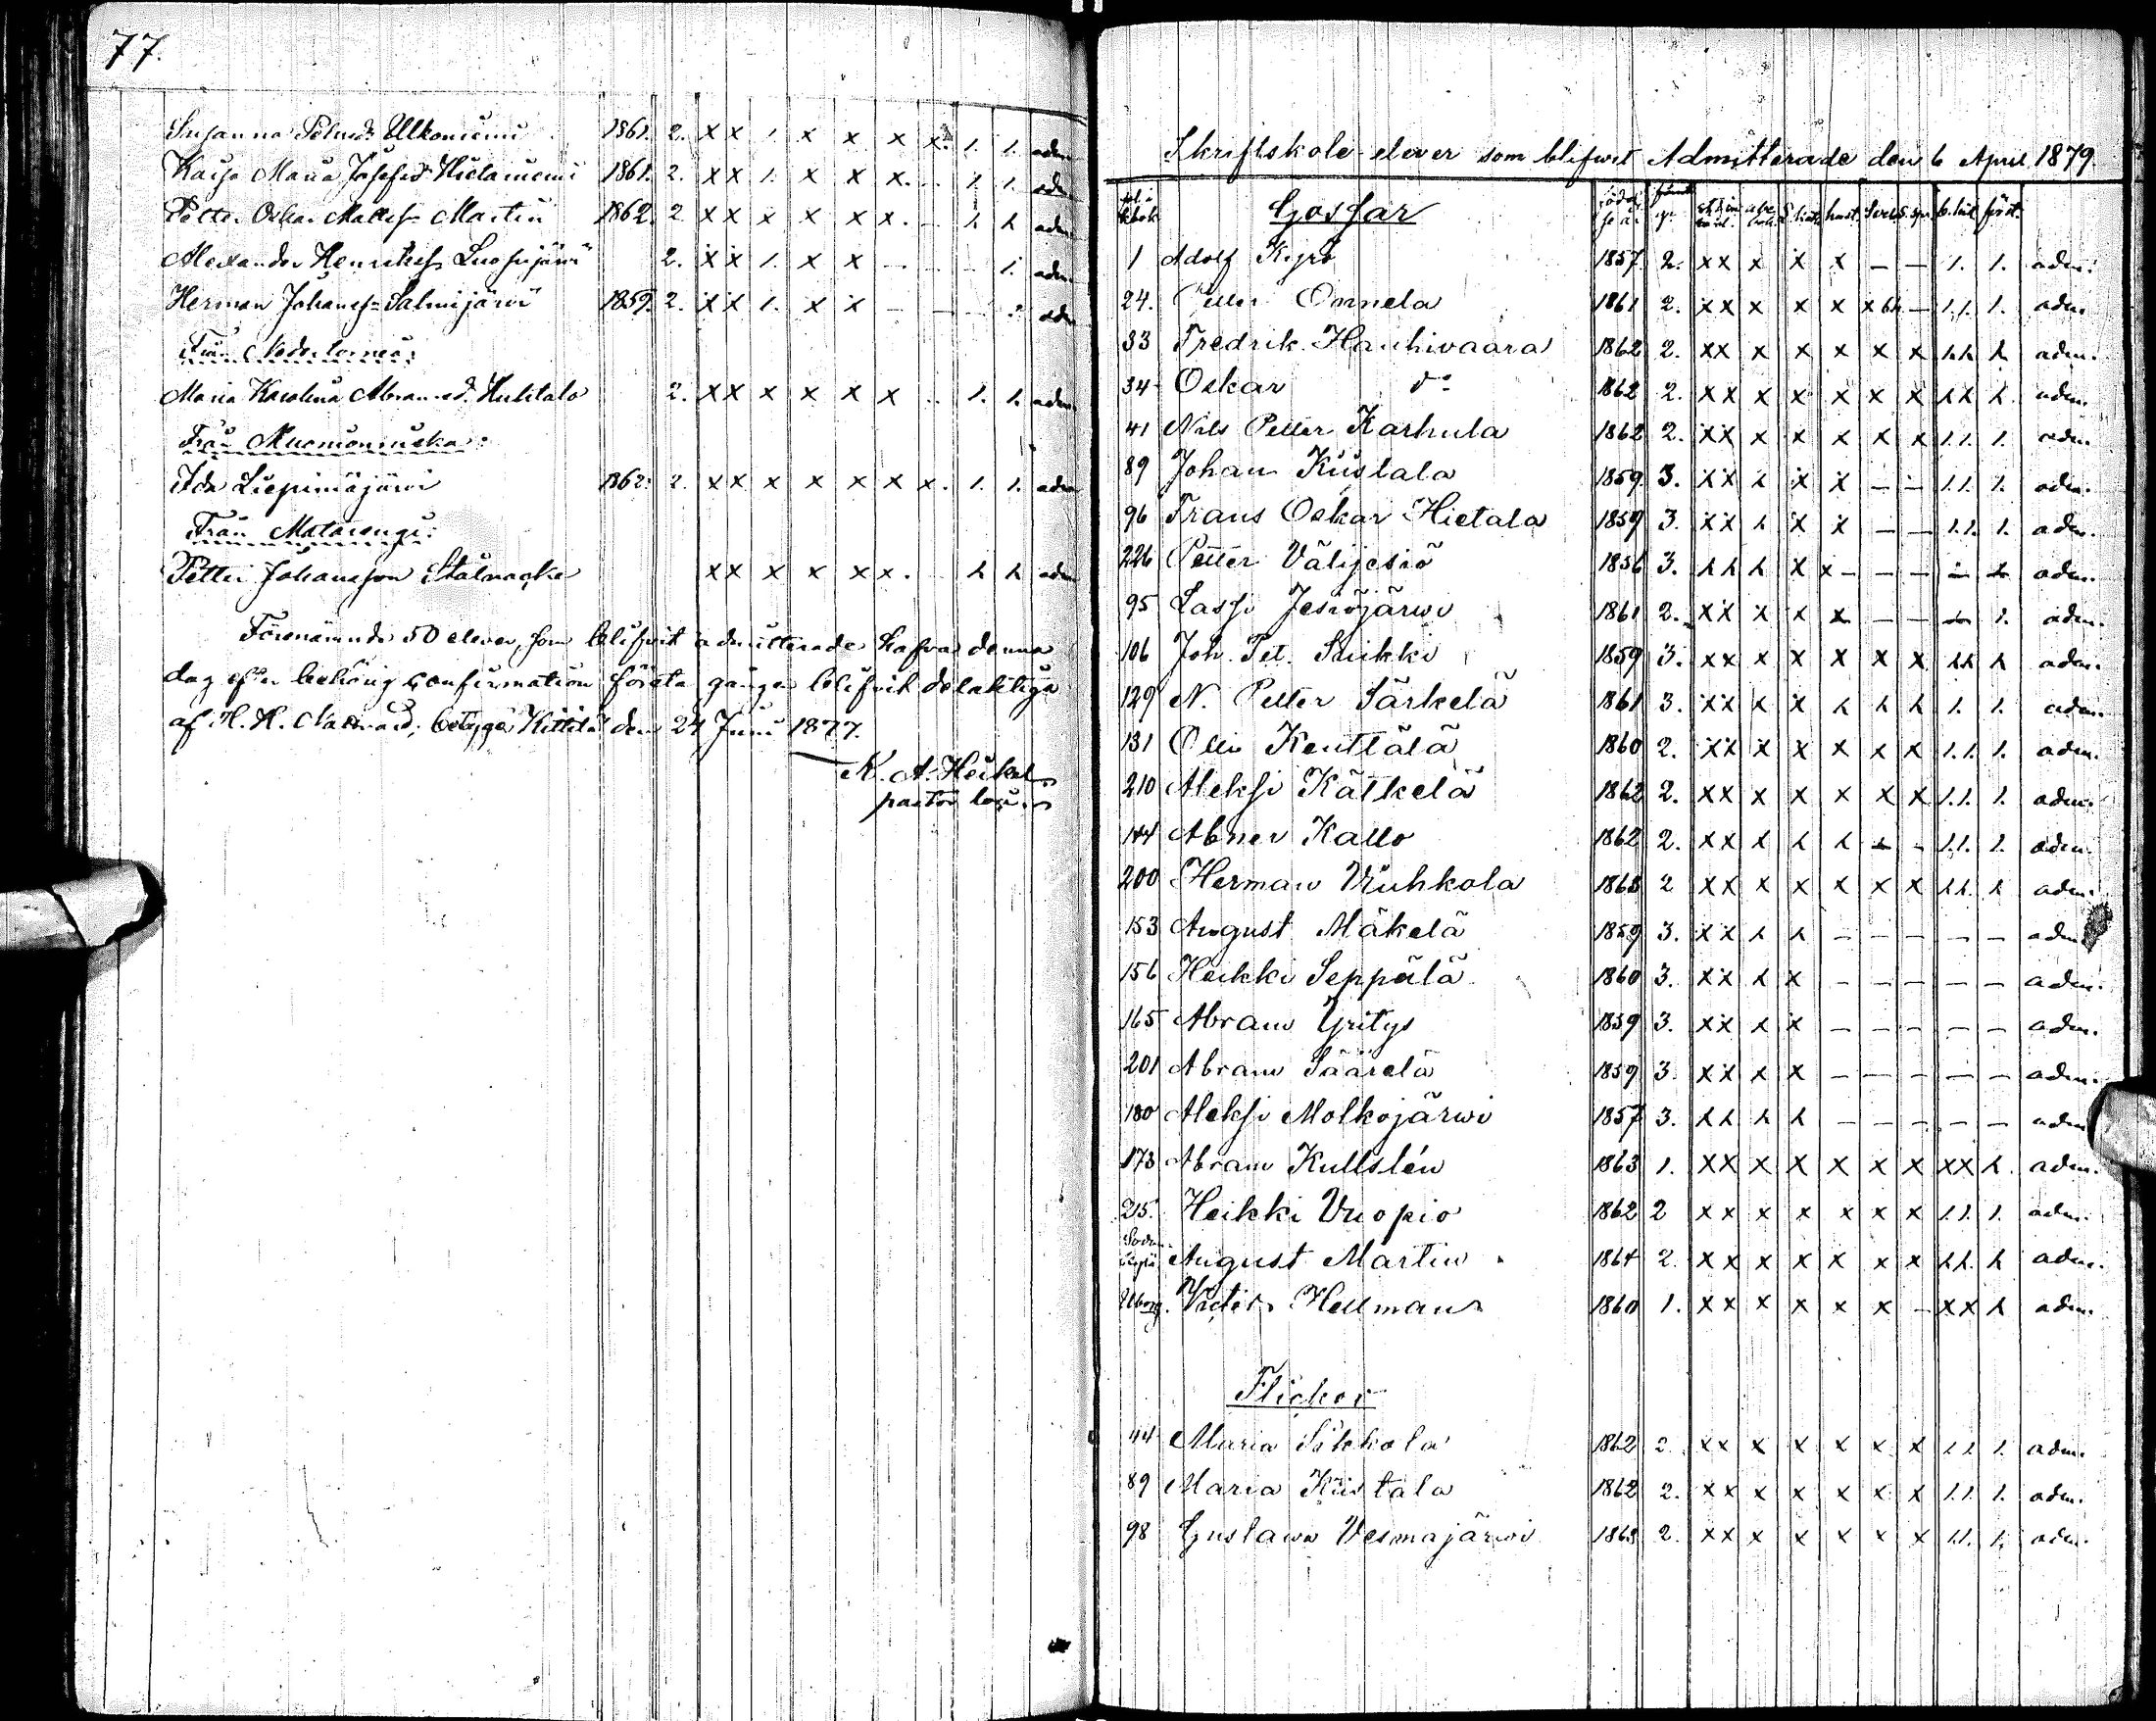 77.
Susanna Ulkoniemi 1861. 2. x x 1. x x x x. 1. 1. adm.
Kaisa Maria Josefsd. Hietaniemi 1861. 2. x x 1. x x x. 1. 1. adm.
Petter Oskar Mattss. Martin 1862. 2 x x x x x x. adm.
Alexander Henrikss. Luosujärvi 2. x x 1. x x - - - 1. adm.
Herman Johanss. Salmijärvi 1859. 2. x x 1. x x - - adm
Från Neder torneå:
Maria Karolina Abramsd. Huhtala 2. x x x x x x .. 1. 1. adm.
Från Muonioniska:
Ida Liepimäjärvi 1862. 2. x x x x x x x. 1. 1. adm
Från Matarengi:
Petter Johansson Stålnacke x x x x x x. adm
Förenämnde 50 elever, som blifvit admitterade hafva denna
dag efter behörig confirmation första gången blifvit delaktiga
af H. H. Nattvard; betygar Kittilä den 24 Juni 1877.
K. A. Heikel
pastor
Skriftskole-elever som blifvit Admitterade den 6 April 1879.
Gossar
1 Adolf Kyrö 1857. 2. x x x x x - - 1. 1. adm.
24. Petter Onnela 1861 2. x x x x x x - 1. 1. 1. adm.
33 Fredrik Hanhivaara 1862 2. x x x x x x x adm.
34 Oskar d:o 1862 2. x x x x x x x adm.
41 Nils Petter Karhula 1862 2. x x x x x x x 1. 1. 1. adm.
89 Johan Kiistala 1859. 3. x x x x x - - 1. 1. 1. adm.
96 Frans Oskar Hietala 1859 3. x x x x x - - 1. 1. 1. adm.
226 Petter Välijesiö 1856 3. x x - - - adm.
95 Lassi Jesiöjärwi 1861 2. x x x x x - - - 1. adm.
106 Joh. Pet. Suikki 1859 3. x x x x x x x adm.
129 N. Petter Särkelä 1861 3. x x x x 1. 1. adm.
131 Olli Kenttälä 1860 2. x x x x x x x 1. 1. 1. adm.
210 Aleksi Kätkelä 1862 2. x x x x x x x 1. 1. 1. adm.
144 Abner Kallo 1862 2. x x x - 1. 1. 1. adm.
200 Herman Vuihkola 1863 2 x x x x x x x adm.
153 August Mäkelä 1859 3. x x - - - - - adm.
156 Heikki Seppälä 1860 3. x x x - - - - - adm.
165 Abram Yritys 1859 3. x x x - - - - - adm.
201 Abram Säärelä 1859 3. x x x x - - - - - adm.
180 Aleksi Molkojärwi 1857 3. - - - - - adm.
173 Abram Kullslén 1863 1. x x x x x x x x x adm.
215. Heikki Vuopio 1862 2 x x x x x x x 1. 1. 1. adm.
August Martin 1864 2. x x x x x x x adm.
Uborg. Victor Hellman 1860 1. x x x x x x - x x adm.
Flickor
44 Maria Sökkola 1862 2. x x x x x x x 1. 1. 1. adm.
89 Maria Kiistala 1862 2. x x x x x x x 1. 1. 1. adm.
98 Gustawa Vesmajärwi 1863 2. x x x x x x x 1. 1. 1. adm.